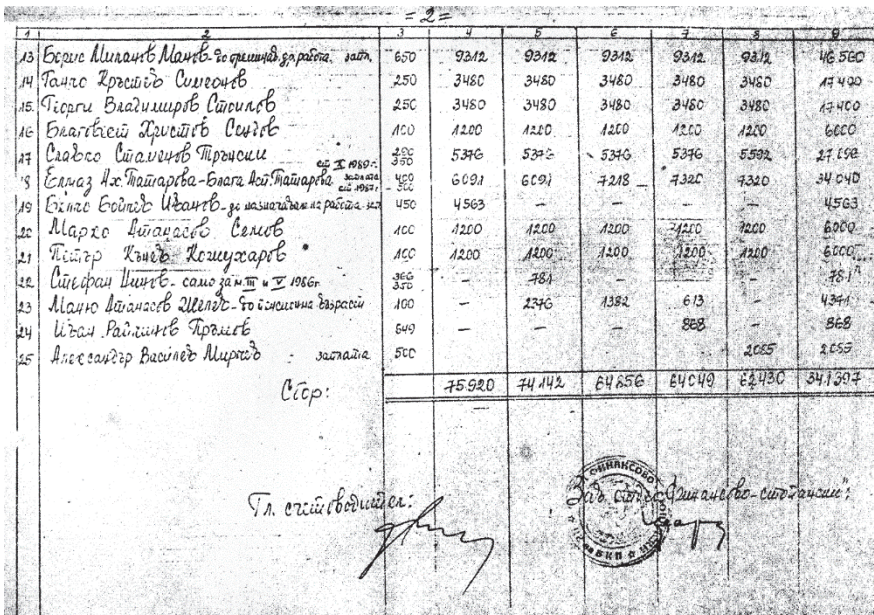 = 2 =
1 2 3 4 5 6 7 8 9
13 Борис Миланов Манов - до от работа. запл. 650 9312 9312 9312 9312 9312 46.560
14 Танчо Кръстев Симеонов 250 3480 3480 3480 3480 3480 17400
15. Георги Владимиров Стоилов 250 3480 3480 3480 3480 3480 17400
16 Благовест Христов Сендов 100 1200 1200 1200 1200 1200 6000
17 Славко Стаменов Трънски 5376 5376 5376 5376 5592 27.096
от X 1989 г. 350
18 Елмаз Ах. Татарова - Блага Ант. Татарова заплата 400 6091 6091 7218 7320 7320 34040
от 1987 г. 500
19 Бойчев Иванов - до назначаване на работа - зап 450 4563 – – – – 4.563
20 Марко Атанасов Семов 100 1200 1200 1200 1200 1200 6.000
21 Петър Кънев Кожухаров 100 1200 1200 1200 1200 1200 6000
22 Стефан Цинов - само за м. III и V 1986 г. 350 – 781 – – – 781
23 Манчо Атанасов - до пенсионна възраст 100 – 2376 1382 613 – 4371
24 Иван 649 – – – 868 – 868
25 Александър Василев Мирчев : заплата 500 2055 2055
Стор: 75.920 74.142 64.856 64049 62.430 341.397
Гл. счетоводител:
Зав. отдел „Финансово-стопански":
ФИНАНСОВО
БКП